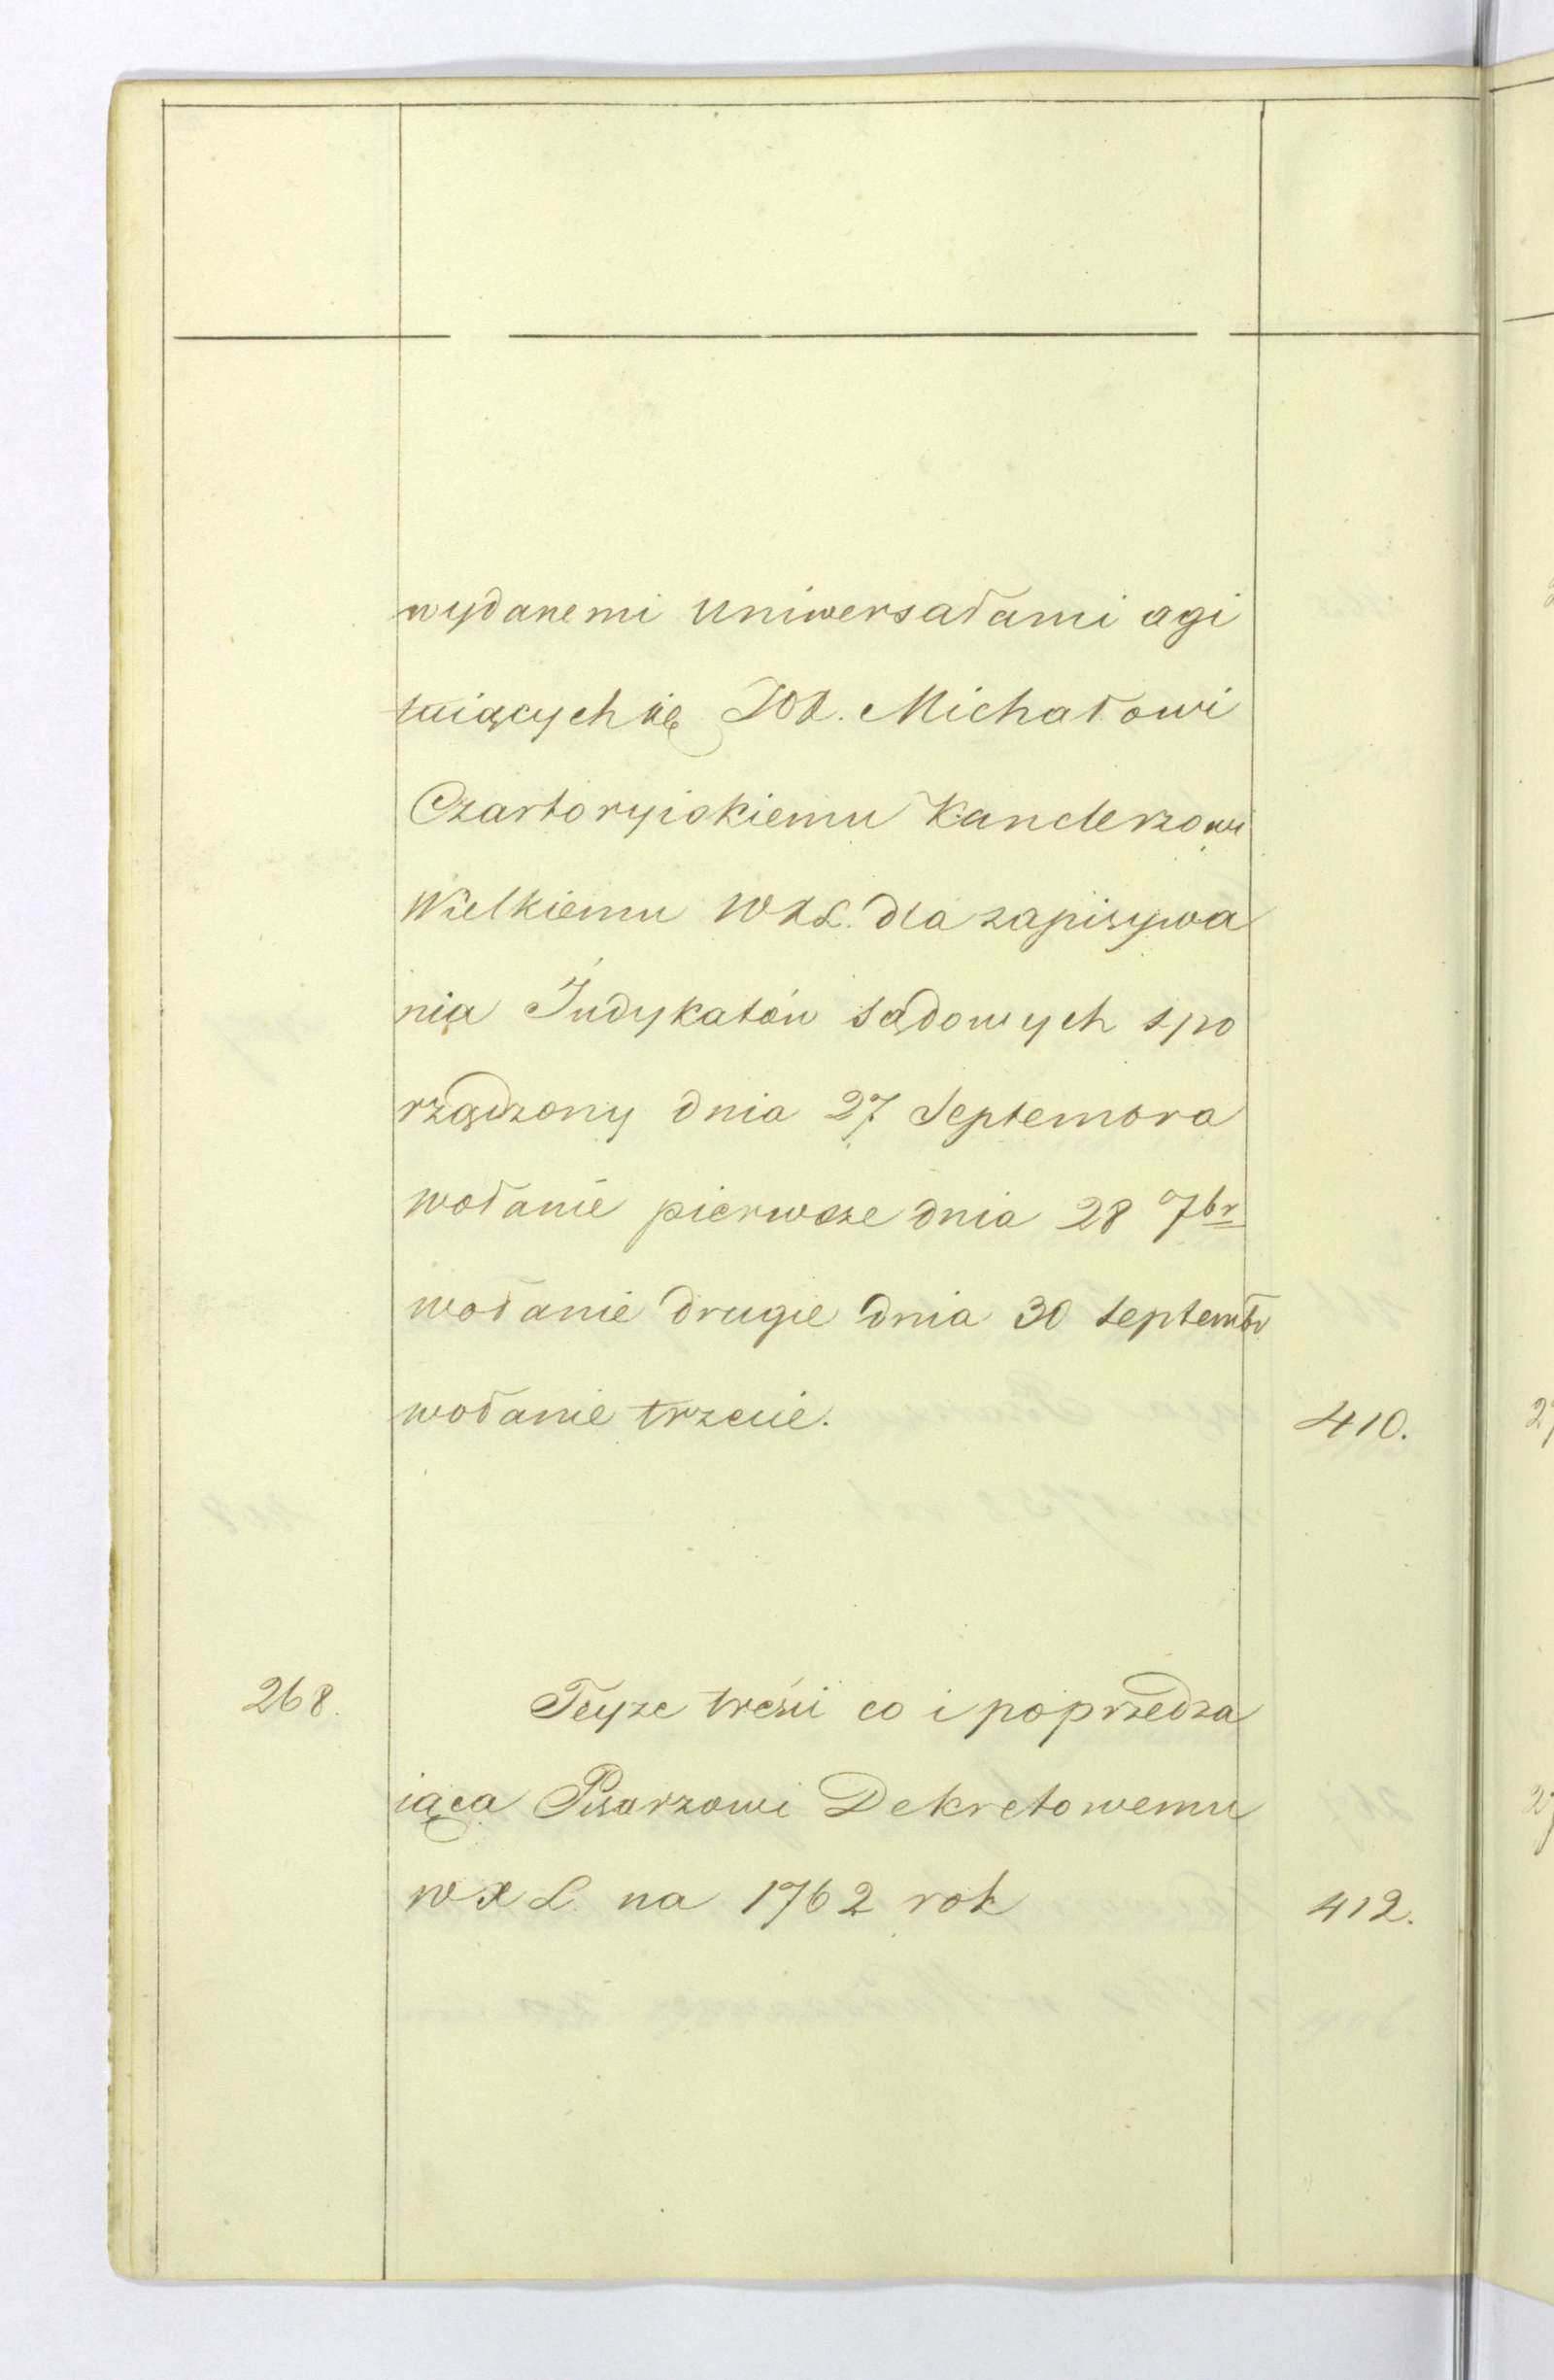 wydanemi uniwersałami agi
tuiących się JOX. Michałowi
Czartoryiskiemu Kanclerzowi
Wielkiemu WXL. dla zapisywa
nia Judykatów sądowych spo
rządzony dnia 27 Septembra
wołanie pierwsze dnia 28 7br
wołanie drugie dnia 30 septembr
wołanie trzecie. 410.
268. Teyże treści co i poprzedza
iąca Pisarzowi Dekretowemu
WXL. na 1762 rok 412.